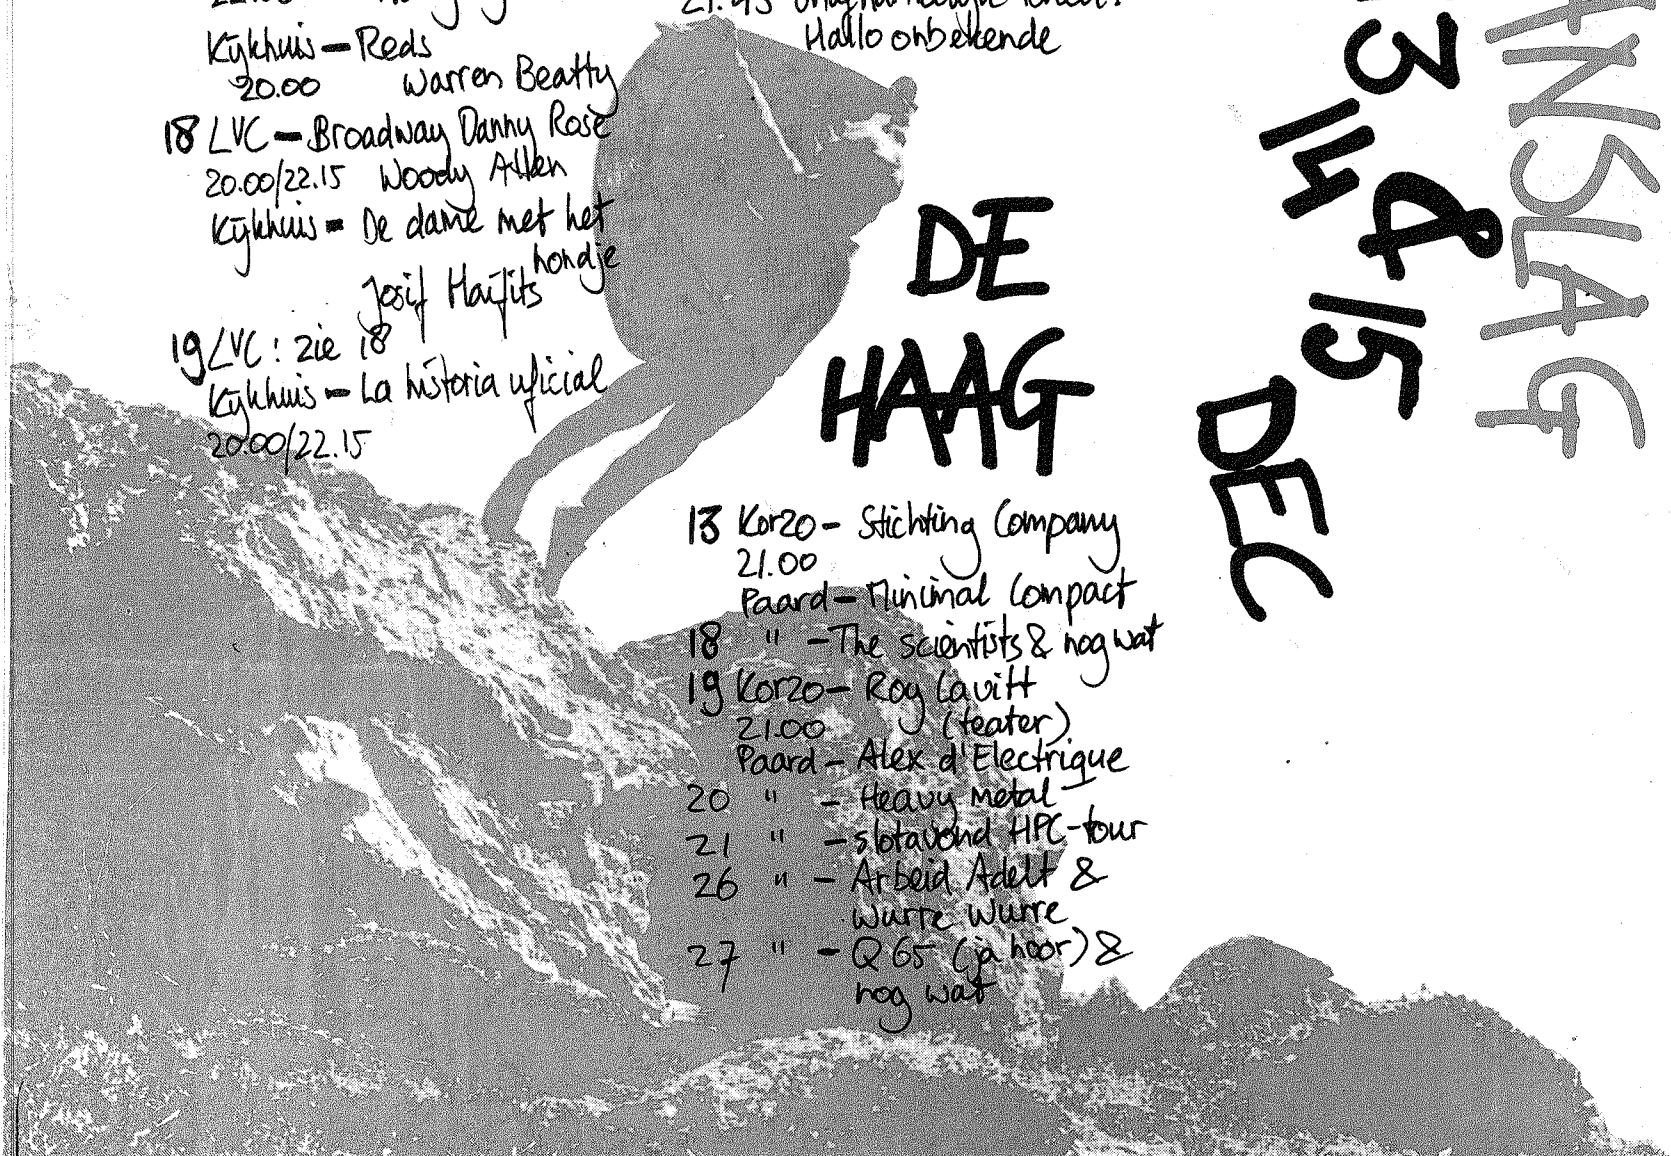 Kijkhuis - Reds
20.00 Warren Beatty
18 LVC - Broadway Danny Rose
20.00/22.15 Woody Allen
Kijkhuis - De dame met het
hondje
Josif Haifits
19 LVC: zie 18
Kijkhuis - La historia uficial
20.00/22.15
21.45
Hallo onbekende
DE
HAAG
13 Korzo - Stichting Company
21.00
Paard - Minimal Compact
18 " - The scientists & nog wat
19 Korzo - Roy Cavitt
21.00 (teater)
Paard - Alex d'Electrique
20 " - Heavy Metal
21 " - slotavond HPC-tour
26 " - Arbeid Adelt &
Wurre Wurre
27 " - Q65 (ja hoor) &
nog wat
3
14
& 15
DEC
ANSLAG